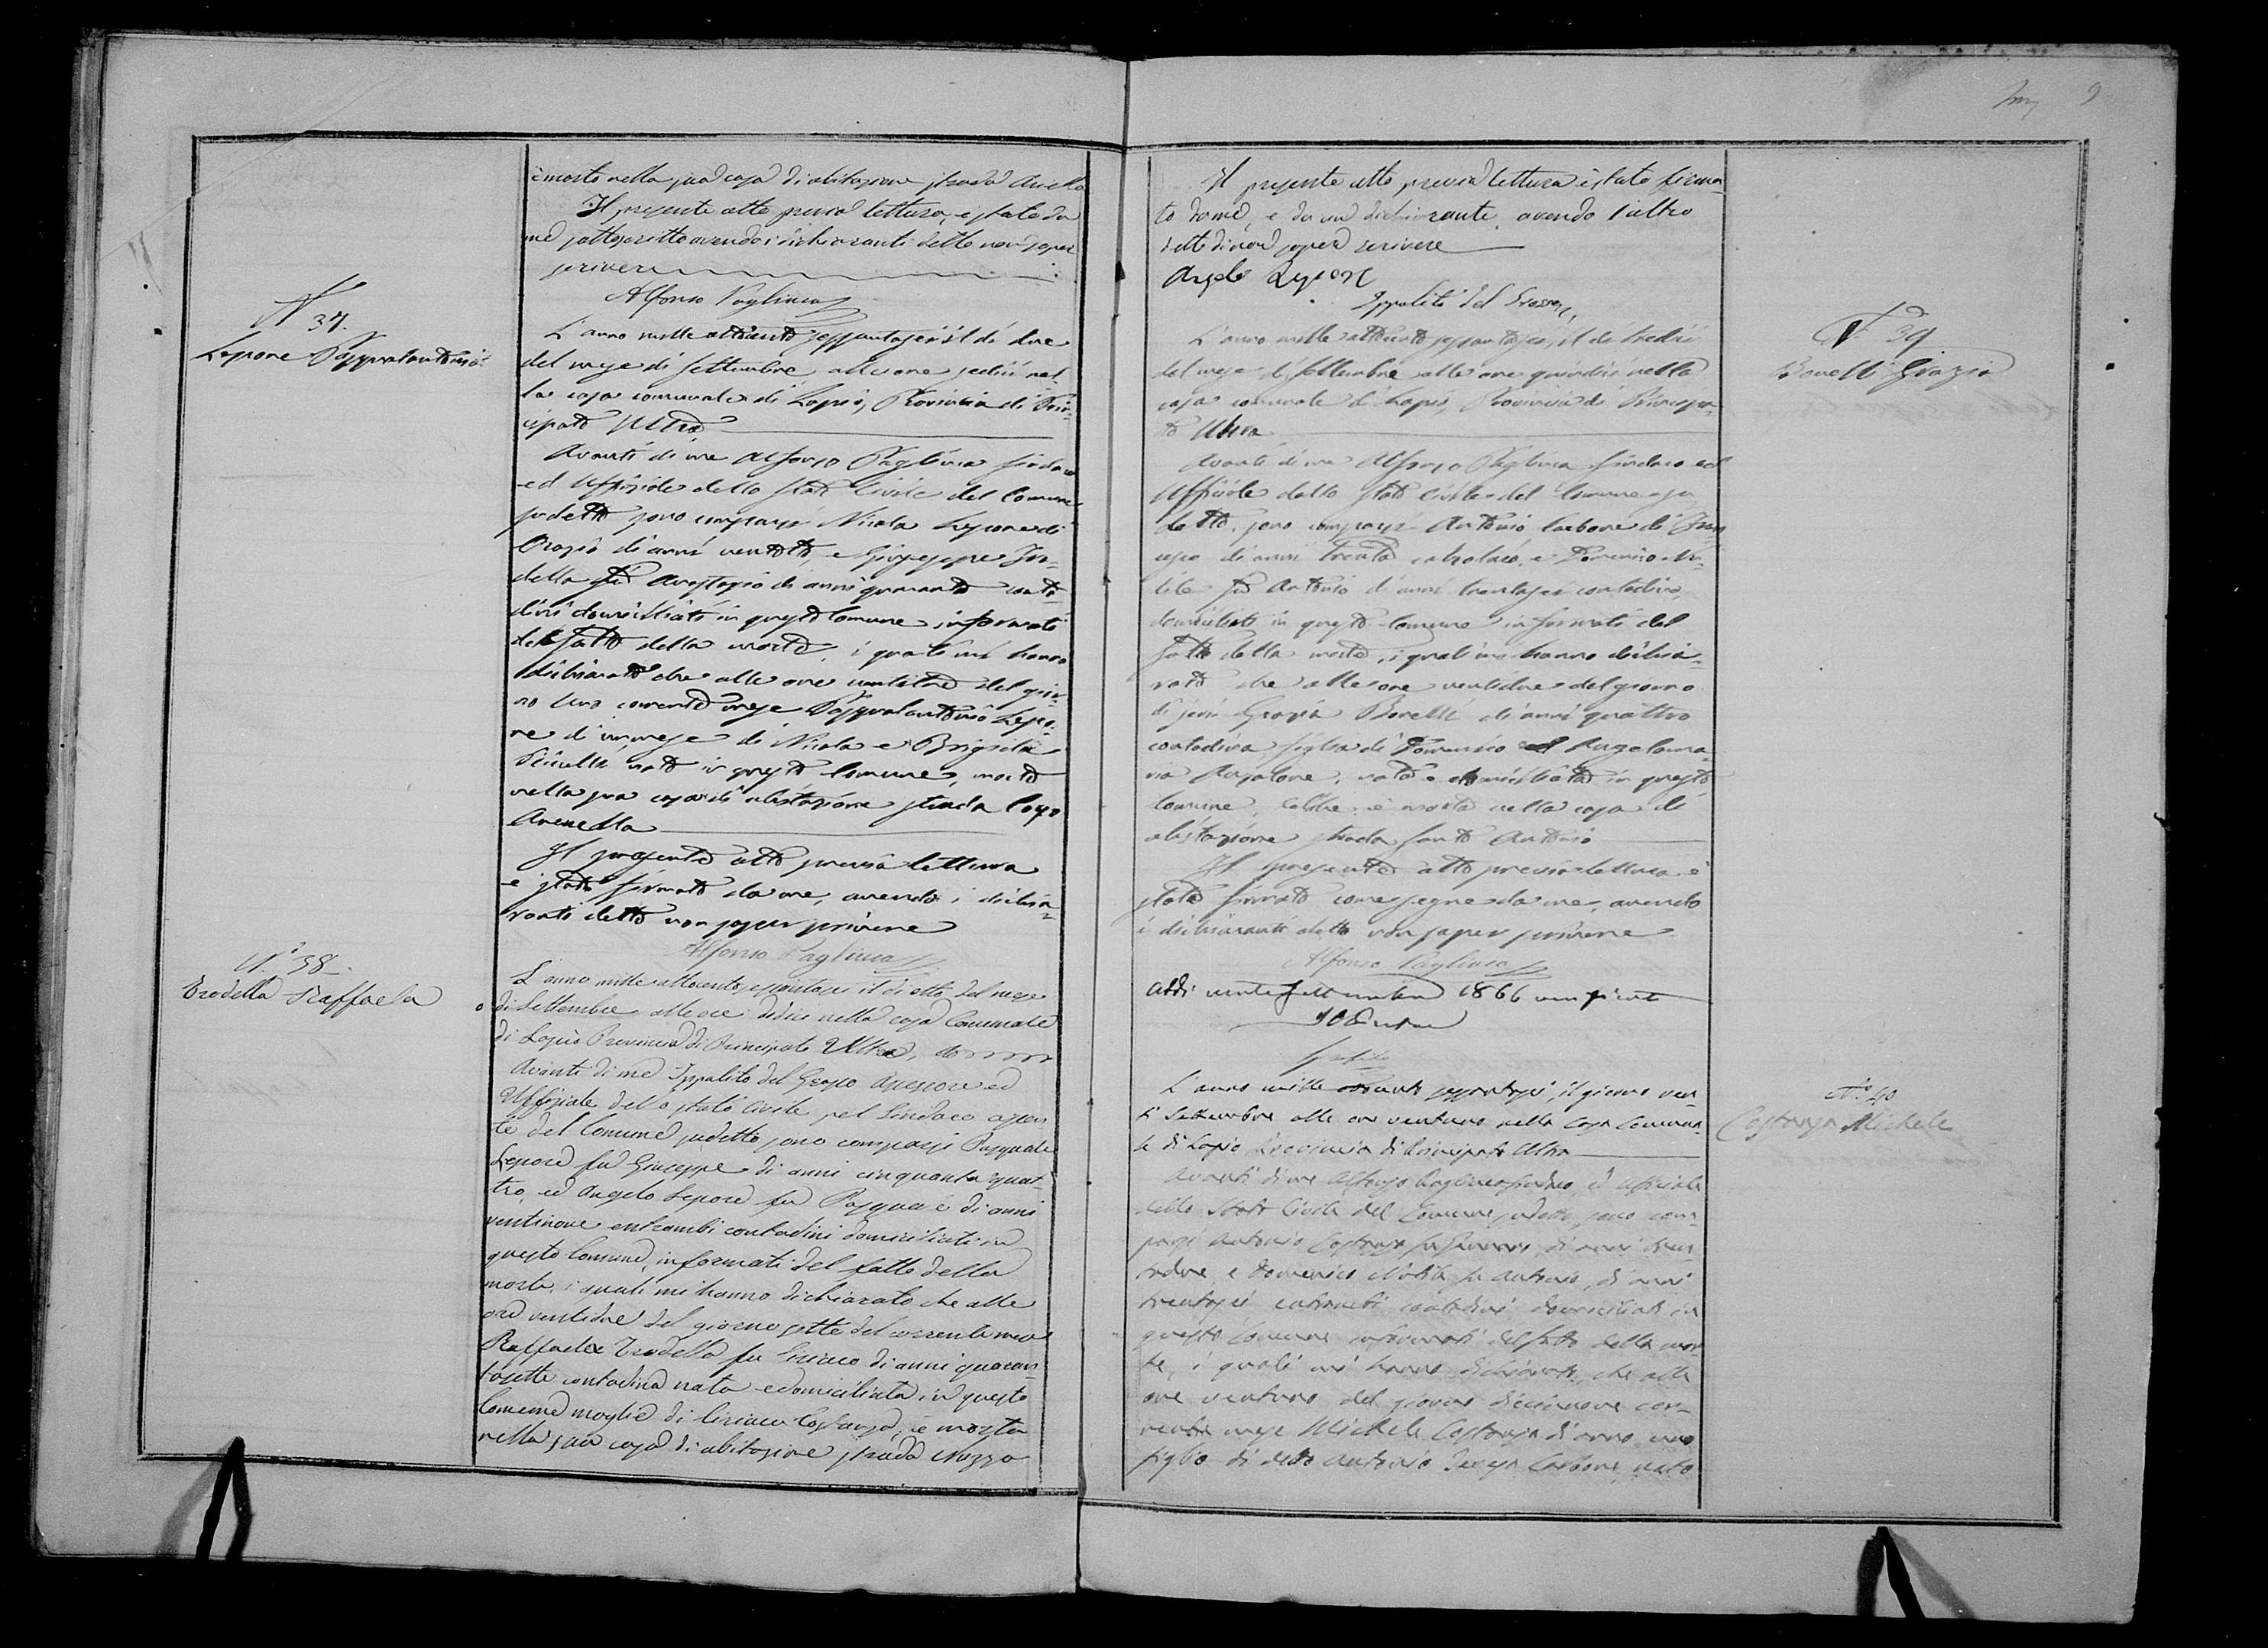 è morto nella sua casa di abitazione strada
Il presente atto previa lettura, è stato da
me sottoscritto avendo i dichiaranti detto non saper
scrivere
Alfonso Pagliuca
N° 37.
Lepore Pasqualantonio
L'anno mille ottocento sessantasei il dì due
del mese di Settembre alle ore sedici nel-
la casa comunale di Lapio, Provincia di Prin-
cipato Ultra
Avanti di me Alfonso Pagliuca Sindaco
ed Uffiziale dello Stato Civile del Comune
sudetto sono comparsi Nicola Lepore di
Orazio di anni ventotto, e Giuseppe
fu Anastasio di anni quaranta conta-
dini domiciliati in questo Comune informati
del fatto della morte, i quali mi hanno
dichiarato che alle ore ventitre del gior-
no uno corrente mese Pasqualantonio Lepo-
re di un mese di Nicola e Brigida
nato in questo Comune, morto
nella sua casa di abitazione strada
Arenella
Il presente atto previa lettura
è stato firmato da me, avendo i dichia-
ranti detto non saper scrivere
Alfonso Pagliuca
N° 38
Trodella Raffaela
L'anno mille ottocento sessantasei il dì otto del mese
di Settembre alle ore dodici nella casa Comunale
di Lapio Provincia di Principato Ultra,
Avanti di me Ippolito del Grosso Assessore ed
Uffiziale dello stato Civile pel Sindaco assen-
te del Comune sudetto sono comparsi Pasquale
Lepore fu Giuseppe di anni cinquanta quat-
tro, ed Angelo Lepore fu Pasquale di anni
ventinove entrambi contadini domiciliati in
questo Comune, informati del fatto della
morte, i quali mi hanno dichiarato che alle
ore ventidue del giorno sette del corrente mese
Raffaela Trodella fu Ciriaco di anni quaran-
tasette contadina nata e domiciliata in questo
Comune moglie di Ciriaco Costanza, è morta
nella sua casa di abitazione strada Mazzo
9
Il presente atto previa lettura è stato firma-
to da me, e da un dichiarante, avendo l'altro
detto di non sapere scrivere
Angelo Lepore
Ippolito del Grosso
N° 39
Bonelli Grazia
L'anno mille ottocento sessantasei, il dì tredici
del mese di Settembre alle ore quindici nella
casa comunale di Lapio, Provincia di Principa-
to Ultra
Avanti di me Alfonso Pagliuca Sindaco ed
Ufficiale dello stato civile del Comune su
detto, sono comparsi Antonio Carbone di
di anni trenta calzolaio, e Domenico No-
bile fu Antonio di anni trentasei contadino,
domiciliati in questo Comune informati del
fatto della morte, i quali mi hanno dichia-
rato che alle ore ventidue del giorno
di jeri Grazia Bonelli di anni quattro
contadina figlia di Domenico ed Angelama-
ria nata e domiciliata in questo
Comune, è morta nella casa di
abitazione strada Santo Antonio
Il presente atto previa lettura è
stato firmato come segue da me, avendo
i dichiaranti detto non saper scrivere
Alfonso Pagliuca
Addi venti Settembre 1866 verificato
N° 40
Costanza Michele
L'anno mille ottocento sessantasei, il giorno ven-
ti Settembre alle ore ventuno nella Casa Comuna-
le di Lapio Provincia di Principato Ultra
Avanti di me Alfonso Pagliuca Sindaco, ed ufficiale
dello Stato Civile del Comune sudetto, sono com-
parsi Antonio Costanza fu di anni tren-
tadue, e Domenico Nobile fu Antonio, di anni
trentasei entrambi contadini domiciliati in
questo Comune informati del fatto della mor-
te, i quali mi hanno dichiarato, che alle
ore ventuno del giorno diciannove cor-
rente mese Michele Costanza di anno uno
figlio di detto Antonio Carbone nato